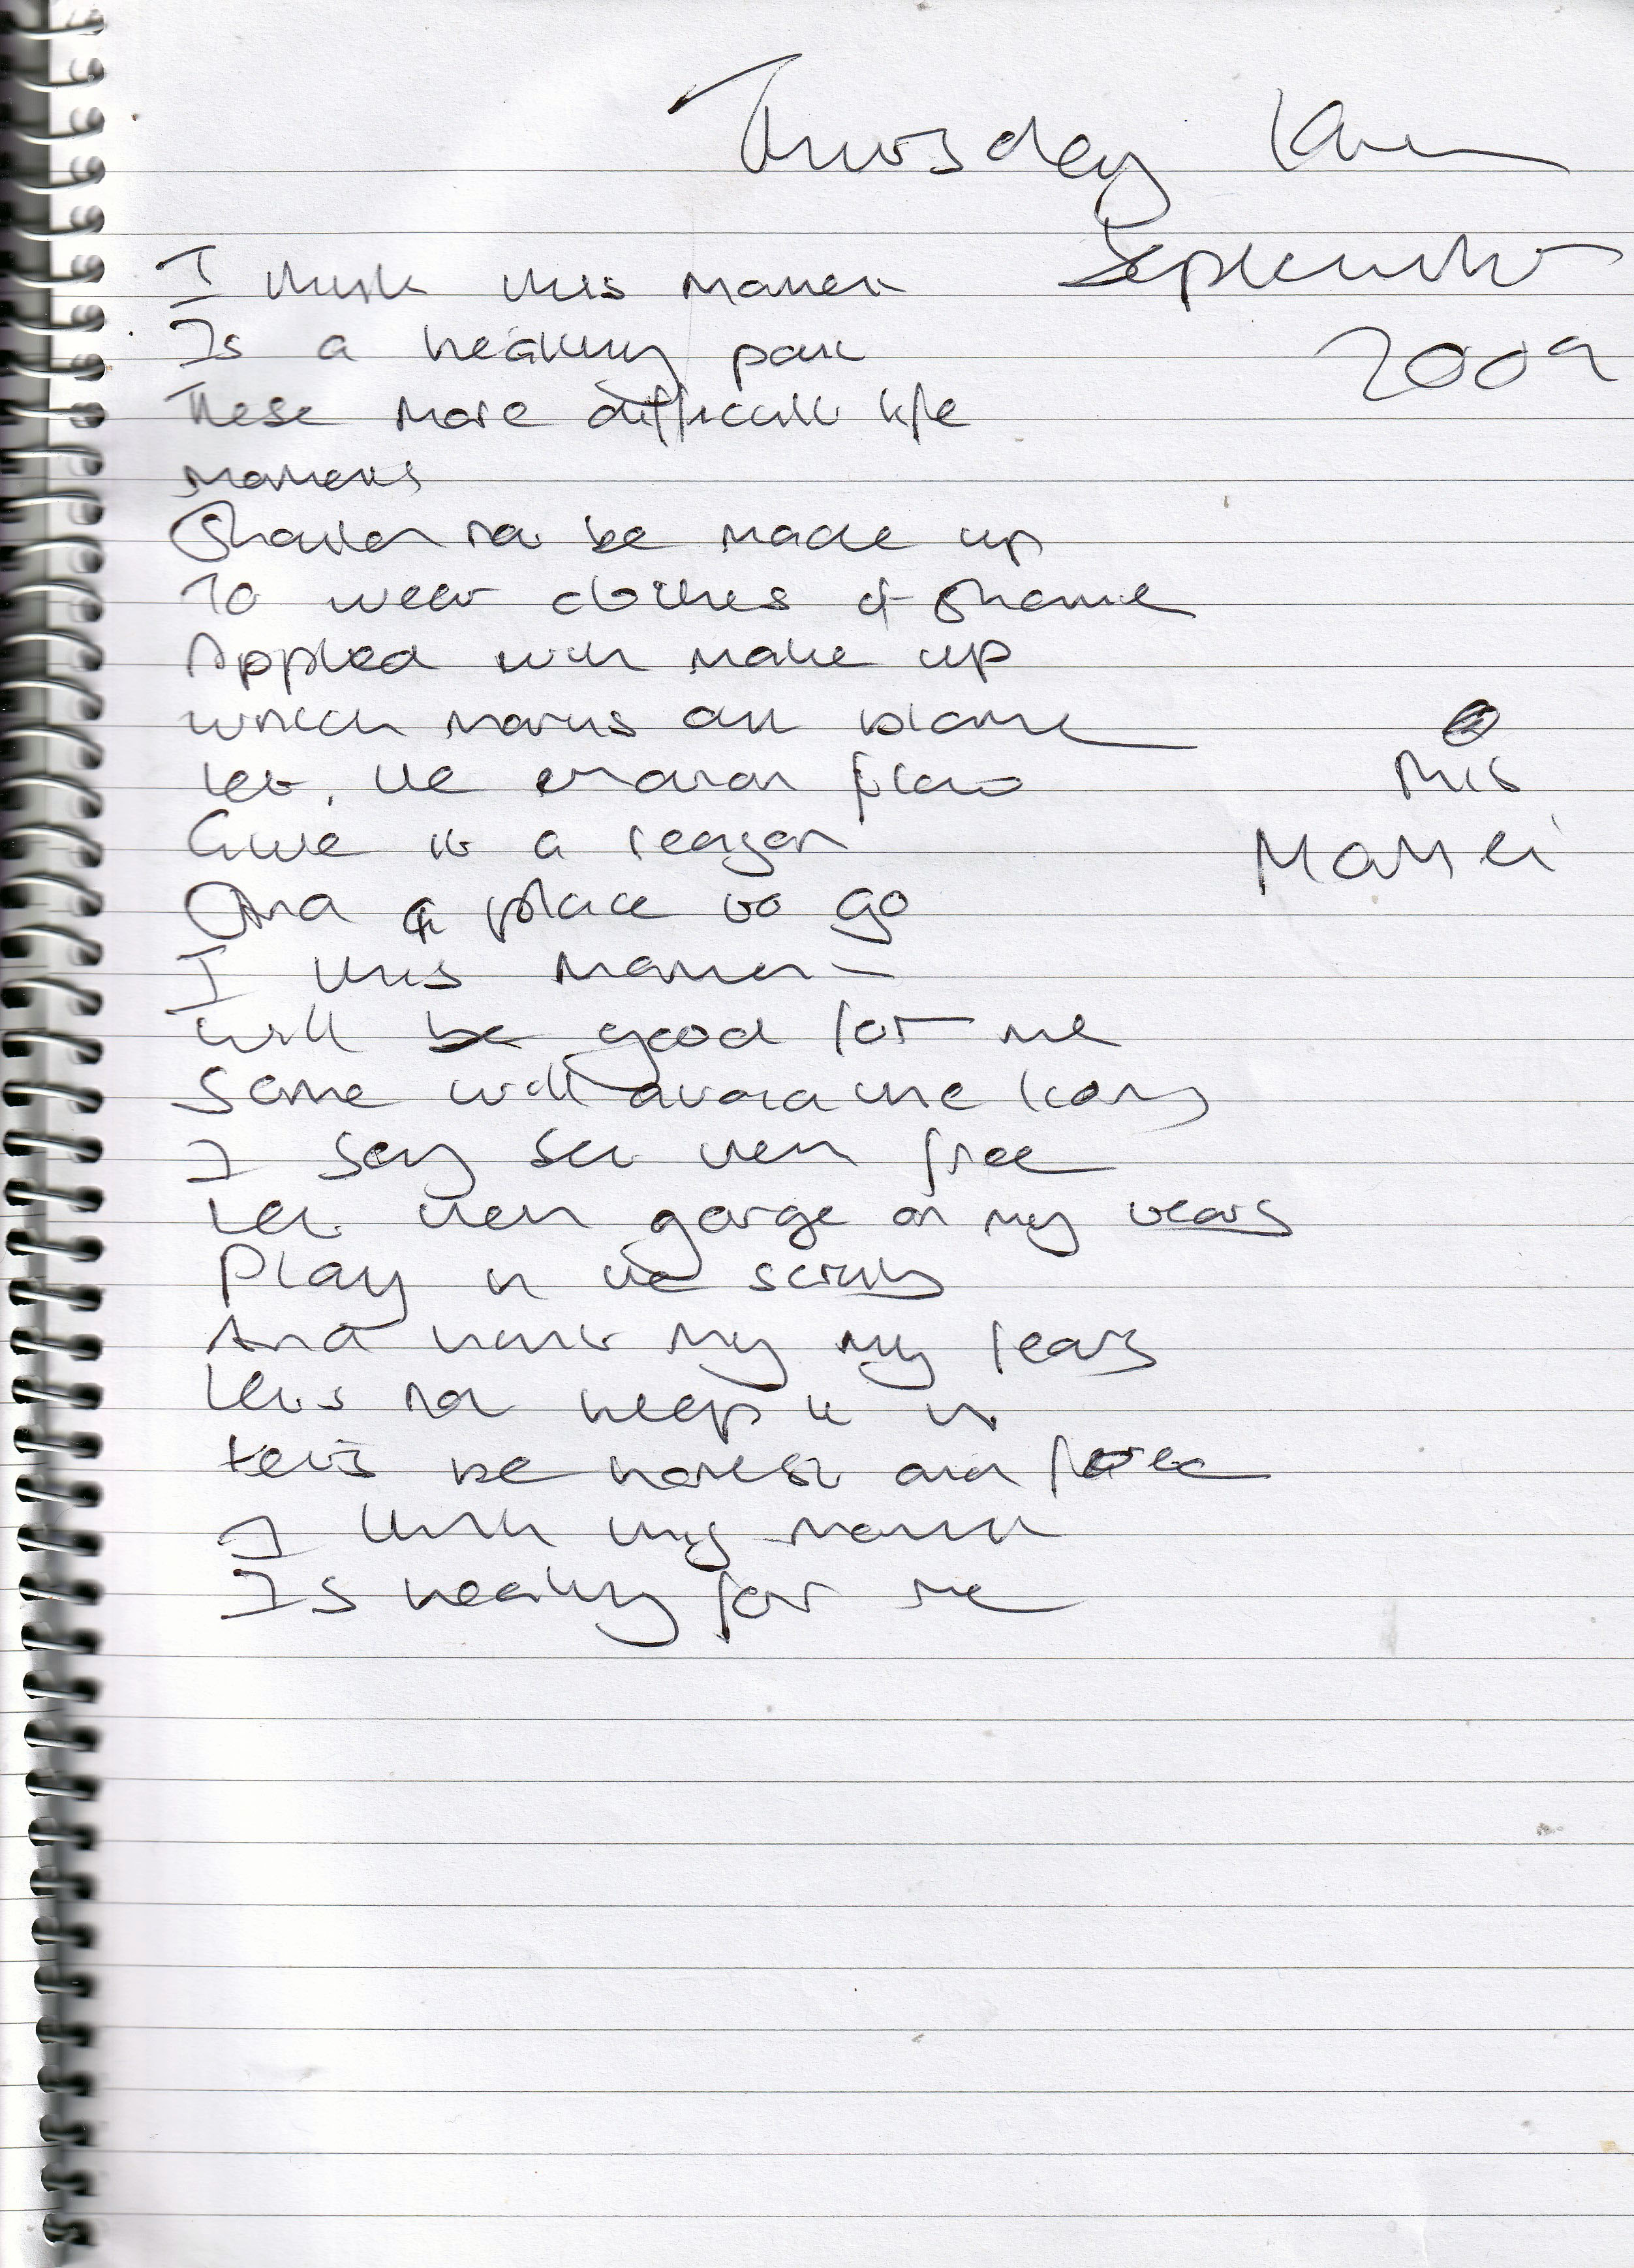 Thursday 10th
September
2009
I think this moment
Is a healing part
These more difficult life
moments
Should not be made up
To wear clothes of shame
Applied with make up
which marks all blame
Let the emotion flow
Give it a reason
And a place to go
I this moment
Will be good for me
Some will avoid the
I say set them free
Let them gorge on my tears
Play in the
And my my fears
Lets not keep it in
Let's be honest and free
I think this moment
Is healing for me
This
Moment